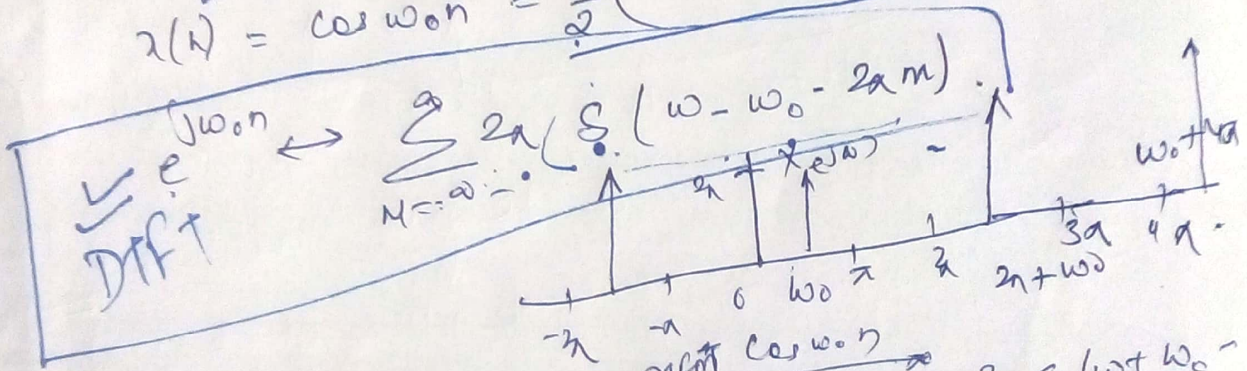 x(n) = cos ω₀n = 2
e^{jω₀n} ↔ ∑_{m=-∞}^{∞} 2π δ(ω - ω₀ - 2πm)
DTFT
2π X(e^{jω})
ω₀+4π
-2π -π 0 ω₀ π 2π 2π+ω₀ 3π 4π
cos ω₀n
ω+ω₀-